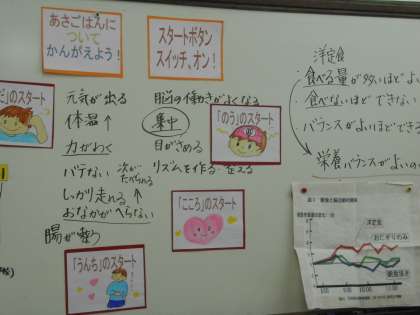 あさごはんに
ついて
かんがえよう！
スタートボタン
スイッチ、オン！
だ」のスタート
元気が出る
体温↑
力がわく
バテない
次が
たべられる
しっかり走れる↑
おなかがへらない
腸が動く
「うんち」のスタート
脳の働きがよくなる
集中
目がさめる
リズムを作る・整える
「のう」のスタート
「こころ」のスタート
洋定食
食べる量が多いほどよい
食べないほどできない
バランスがよいほどできる
栄養バランスがよいの
洋定食
おにぎりのみ
朝食抜き